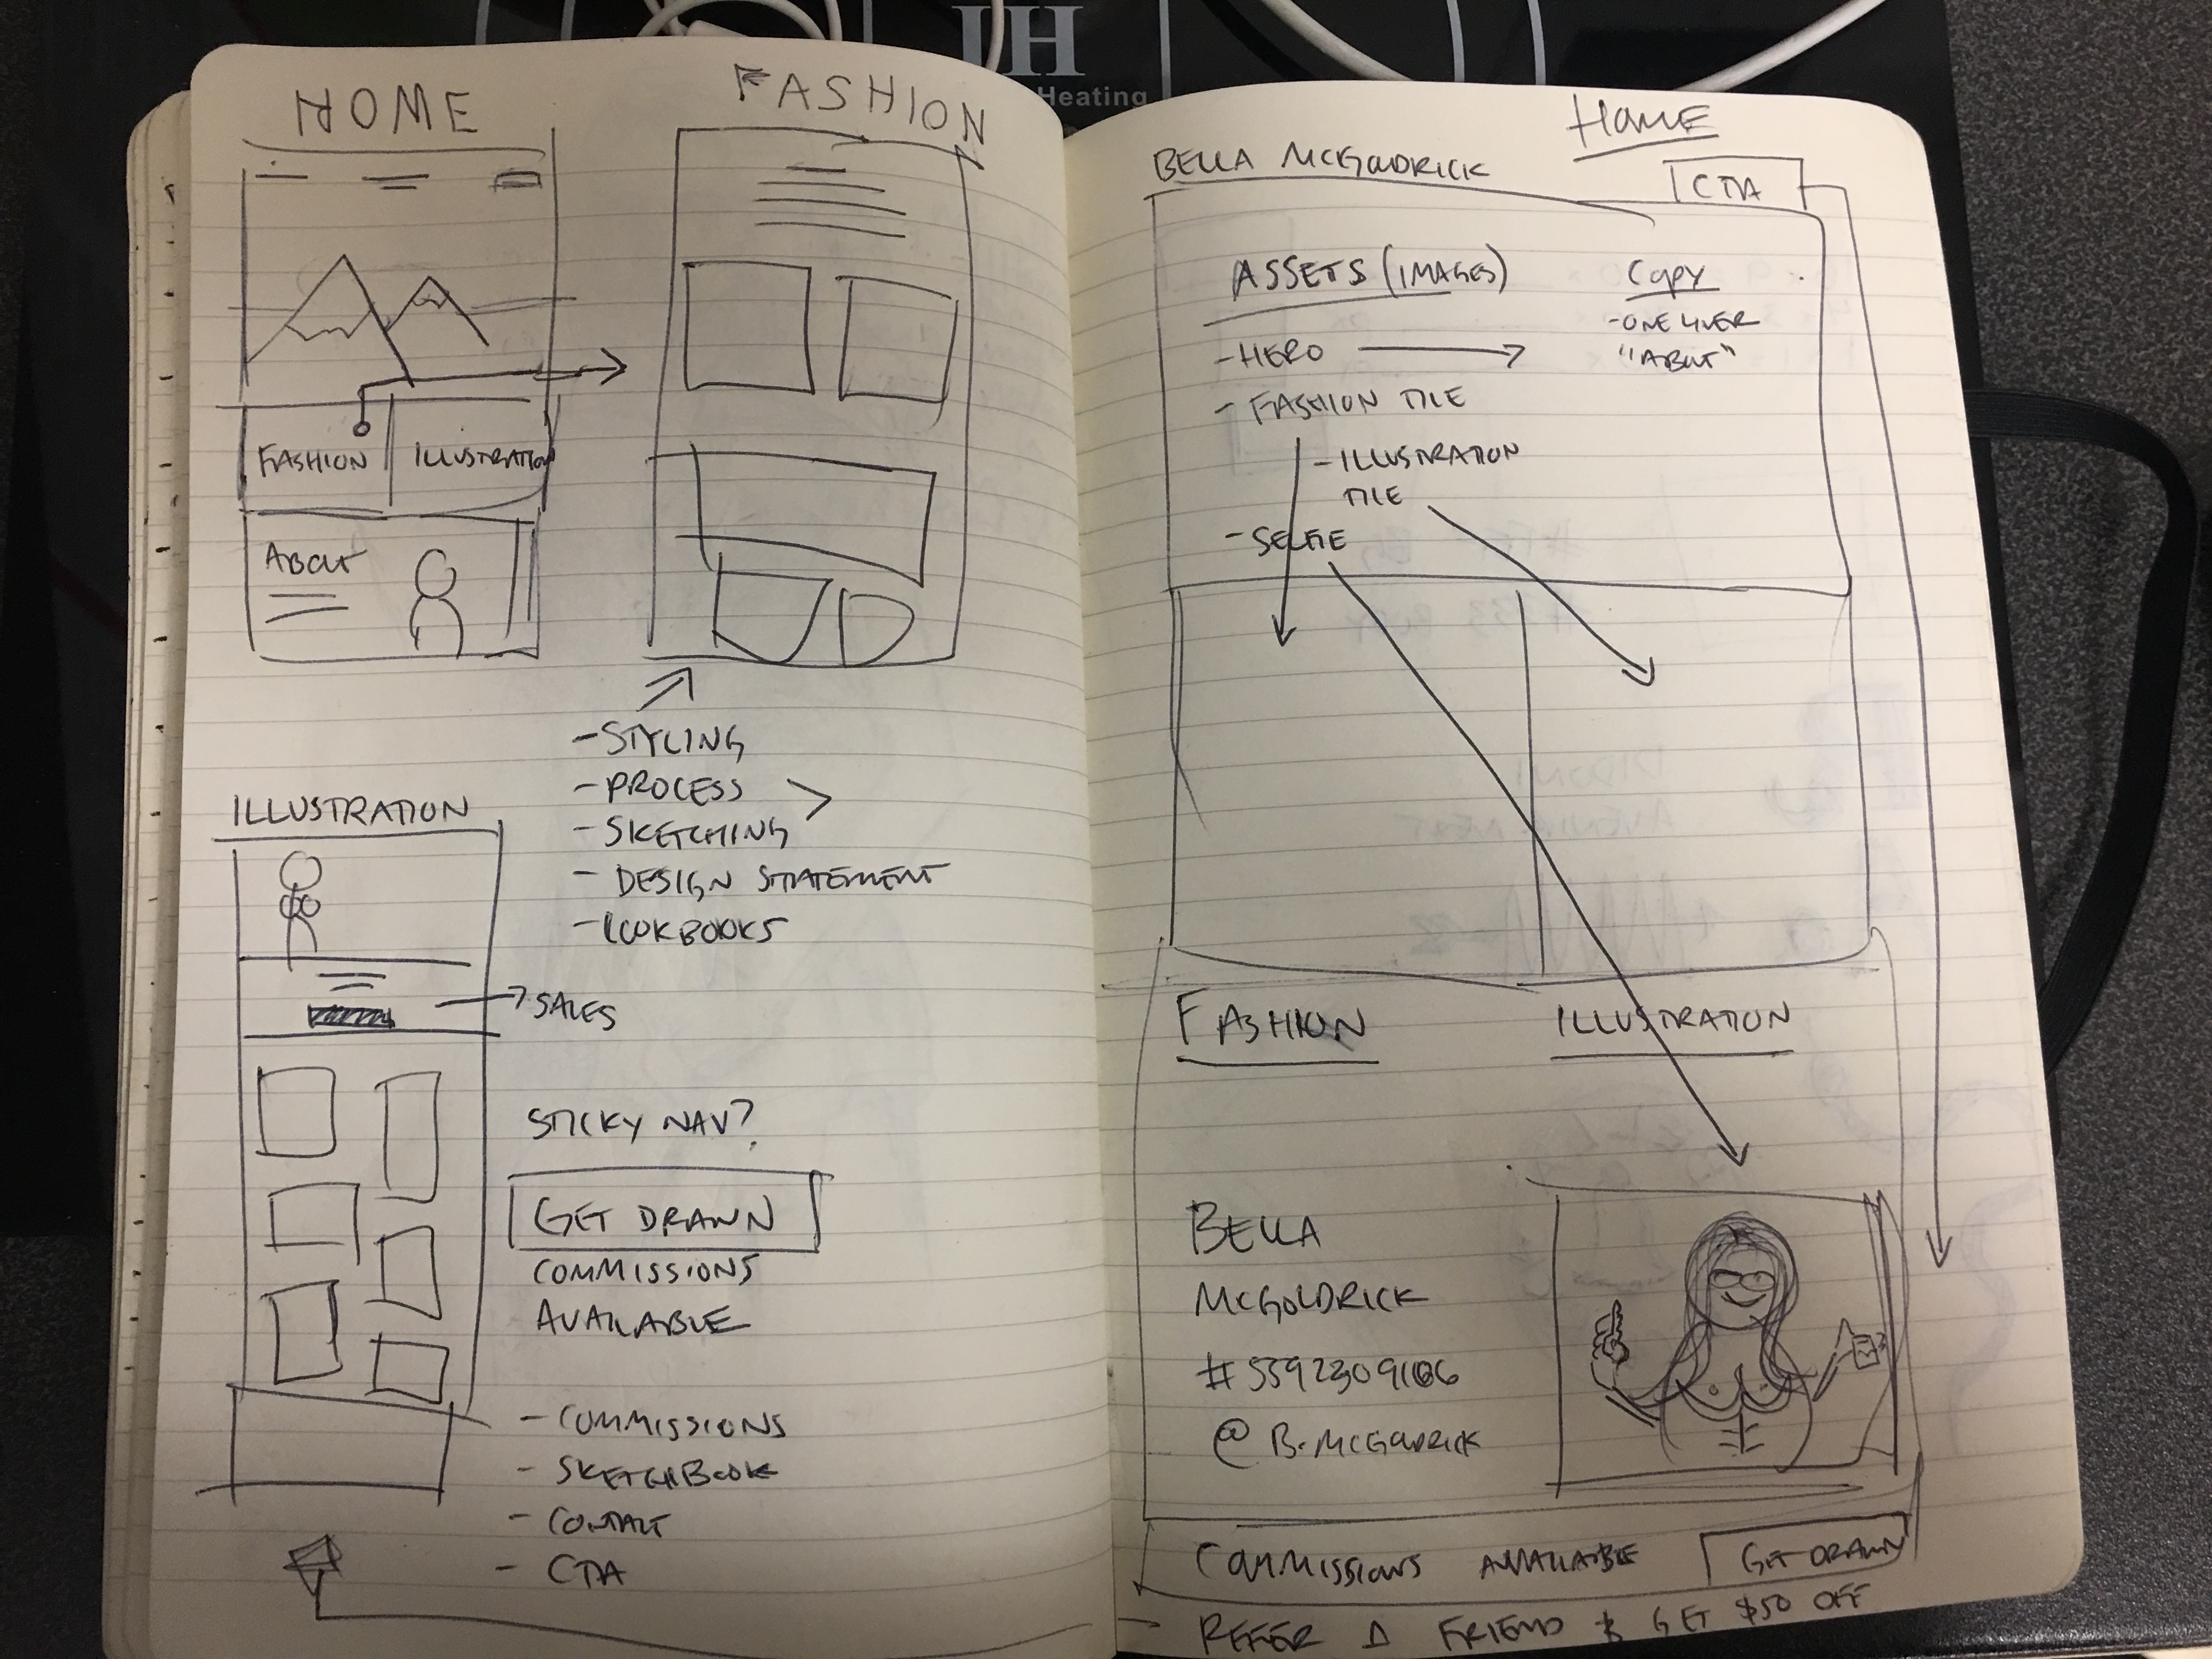 IH
Heating
HOME
FASHION
FASHION
ILLUSTRATION
ABOUT
- STYLING
- PROCESS >
- SKETCHING
- DESIGN STATEMENT
- LOOKBOOKS
ILLUSTRATION
→ SALES
STICKY NAV?
GET DRAWN
COMMISSIONS
AVAILABLE
- COMMISSIONS
- SKETCHBOOK
- CONTACT
- CTA
HOME
BELLA MCGOLDRICK
CTA
ASSETS (IMAGES)
COPY
- HERO →
- ONE LINER
"ABOUT"
- FASHION TILE
- ILLUSTRATION
TILE
- SELFIE
FASHION
ILLUSTRATION
BELLA
MCGOLDRICK
@ B.MCGOLDRICK
COMMISSIONS AVAILABLE
GET DRAWN
REFER A FRIEND & GET $50 OFF